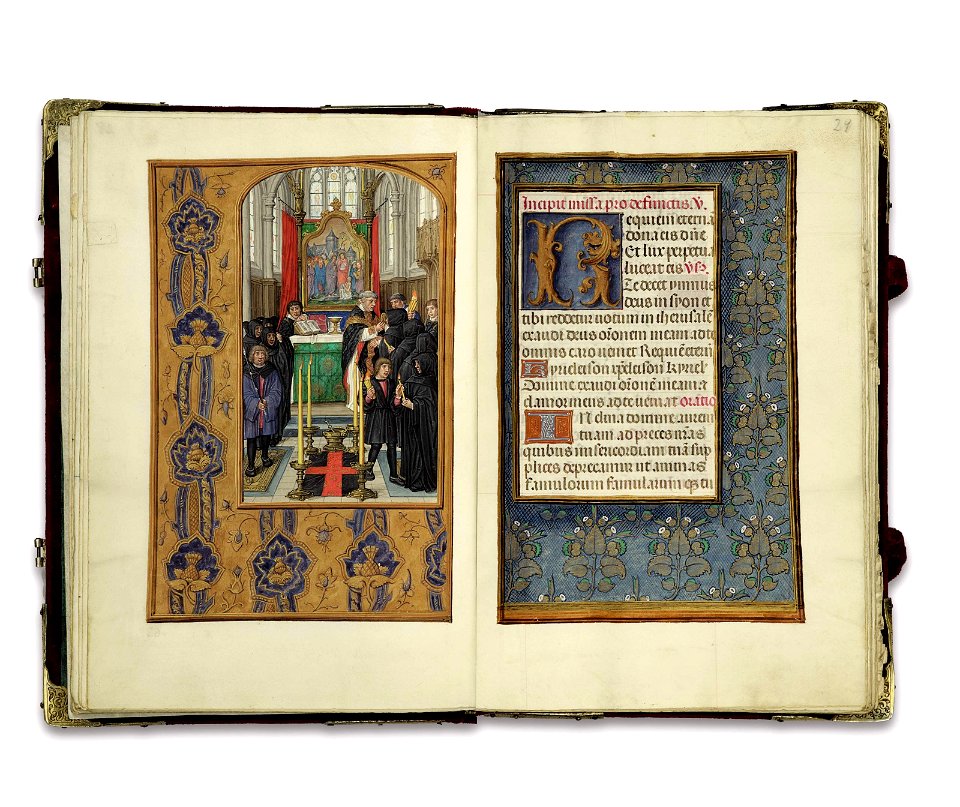 29
Incipit missa pro defunctis. V.
Requiem eterna
dona eis dñe
Et lux perpetua
luceat eis v̄s.
Te decet ymnus
deus in syon et
tibi reddetur uotum in iherusalē
exaudi deus orōnem meam ad te
omnis caro ueniet Requiē etern̄
Kyrieleison xp̄eleison Kyriel'
Domine exaudi orōnē meam &
clamor meus ad te ueniat oratio
Inclina domine aurem
tuam ad preces nr̄as
quibus misericordiam tuā sup
plices deprecamur ut animas
famulorum famularum q3 tu